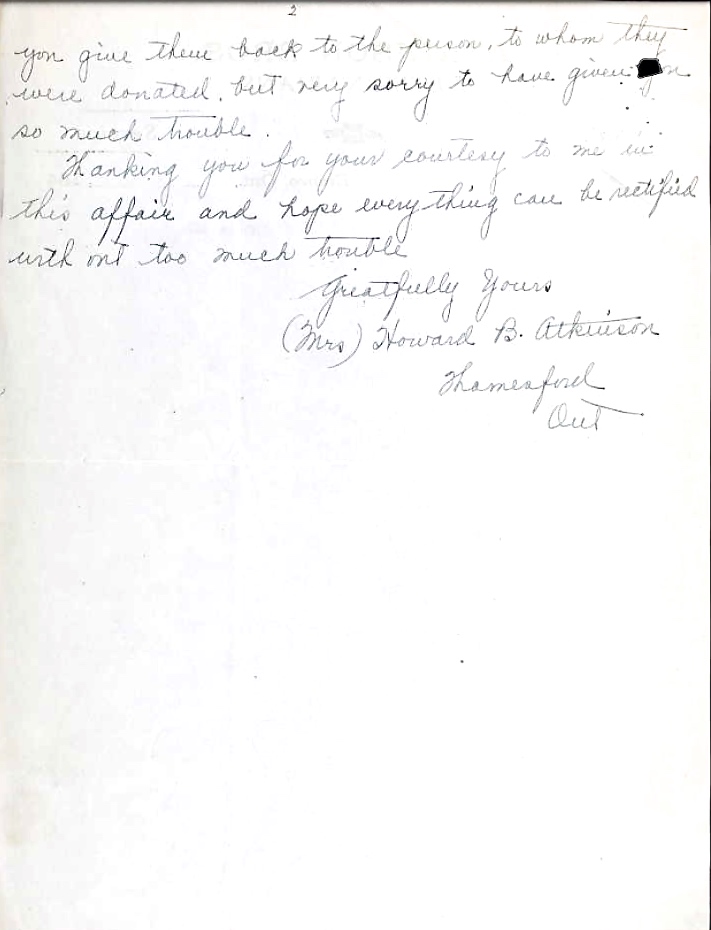 2
you give them back to the person, to whom they
were donated, but very sorry to have given
so much trouble.
Thanking you for your courtesy to me in
this affair and hope everything can be rectified
with out too much trouble
Greatfully Yours
(Mrs) Howard B. Atkinson
Thamesford
Ont